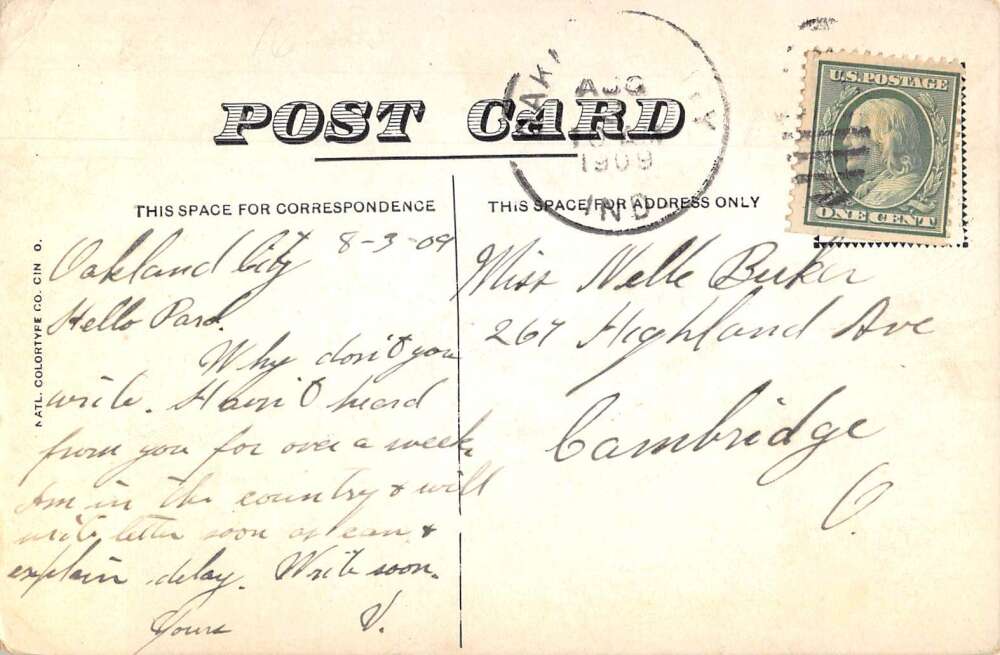 POST CARD
THIS SPACE FOR CORRESPONDENCE
THIS SPACE FOR ADDRESS ONLY
U.S. POSTAGE
ONE CENT
AUG
1909
IND
NATL. COLORTYPE CO. CIN O.
Oakland City 8-3-09
Hello Pard.
Why don't you
write. Hain't heard
from you for over a week.
Am in the country & will
write letter soon as can &
explain delay. Write soon.
Yours V.
Miss Nelle
267 Highland Ave
Cambridge
O.